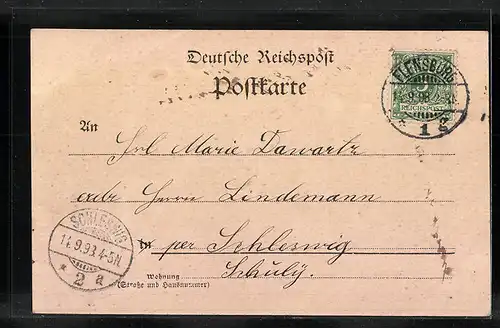 Deutsche Reichspost
Postkarte
FLENSBURG
9.98
* 1 g
5
REICHSPOST
An
Frl Marie
Herrn Lindemann
in per Schleswig
SCHLESWIG
11.9.98. 4-5N
* 2 a
Wohnung
(Straße und Hausnummer)